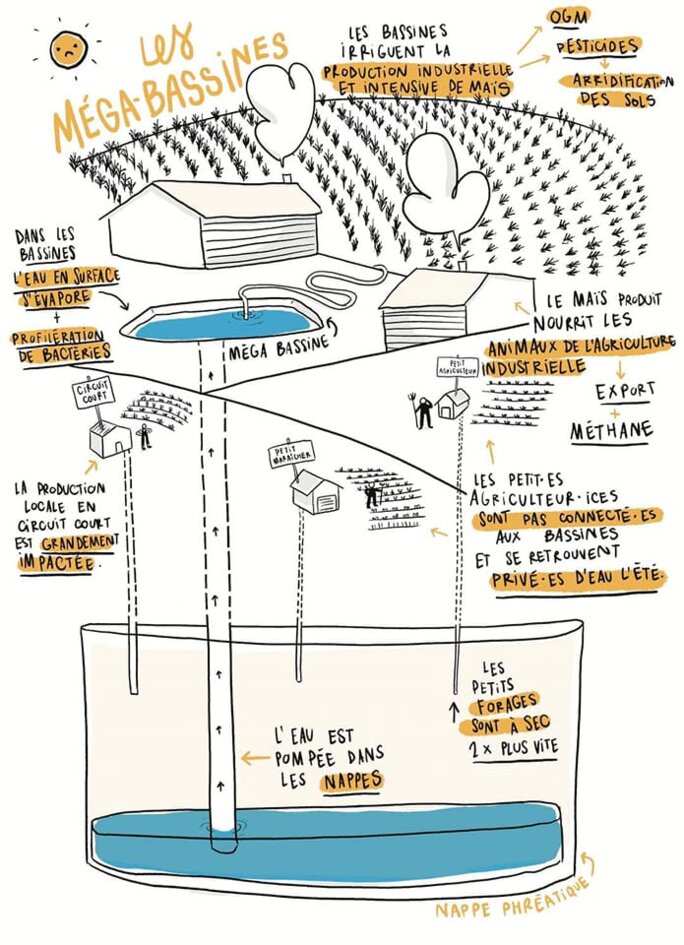 LES
MÉGA-BASSINES
LES BASSINES
IRRIGUENT LA
PRODUCTION INDUSTRIELLE
ET INTENSIVE DE MAÏS
OGM
PESTICIDES
ARRIDIFICATION
DES SOLS
DANS LES
BASSINES
L'EAU EN SURFACE
S'ÉVAPORE
+
PROFILÉRATION
DE BACTÉRIES
MÉGA BASSINE
LE MAÏS PRODUIT
NOURRIT LES
ANIMAUX DE L'AGRICULTURE
INDUSTRIELLE
EXPORT
+
MÉTHANE
CIRCUIT
COURT
PETIT
AGRICULTEUR
PETIT
MARAÎCHER
LA PRODUCTION
LOCALE EN
CIRCUIT COURT
EST GRANDEMENT
IMPACTÉE.
LES PETIT·ES
AGRICULTEUR·ICES
SONT PAS CONNECTÉ·ES
AUX BASSINES
ET SE RETROUVENT
PRIVÉ·ES D'EAU L'ÉTÉ.
LES
PETITS
FORAGES
SONT À SEC
2 x PLUS VITE
L'EAU EST
POMPÉE DANS
LES NAPPES
NAPPE PHRÉATIQUE